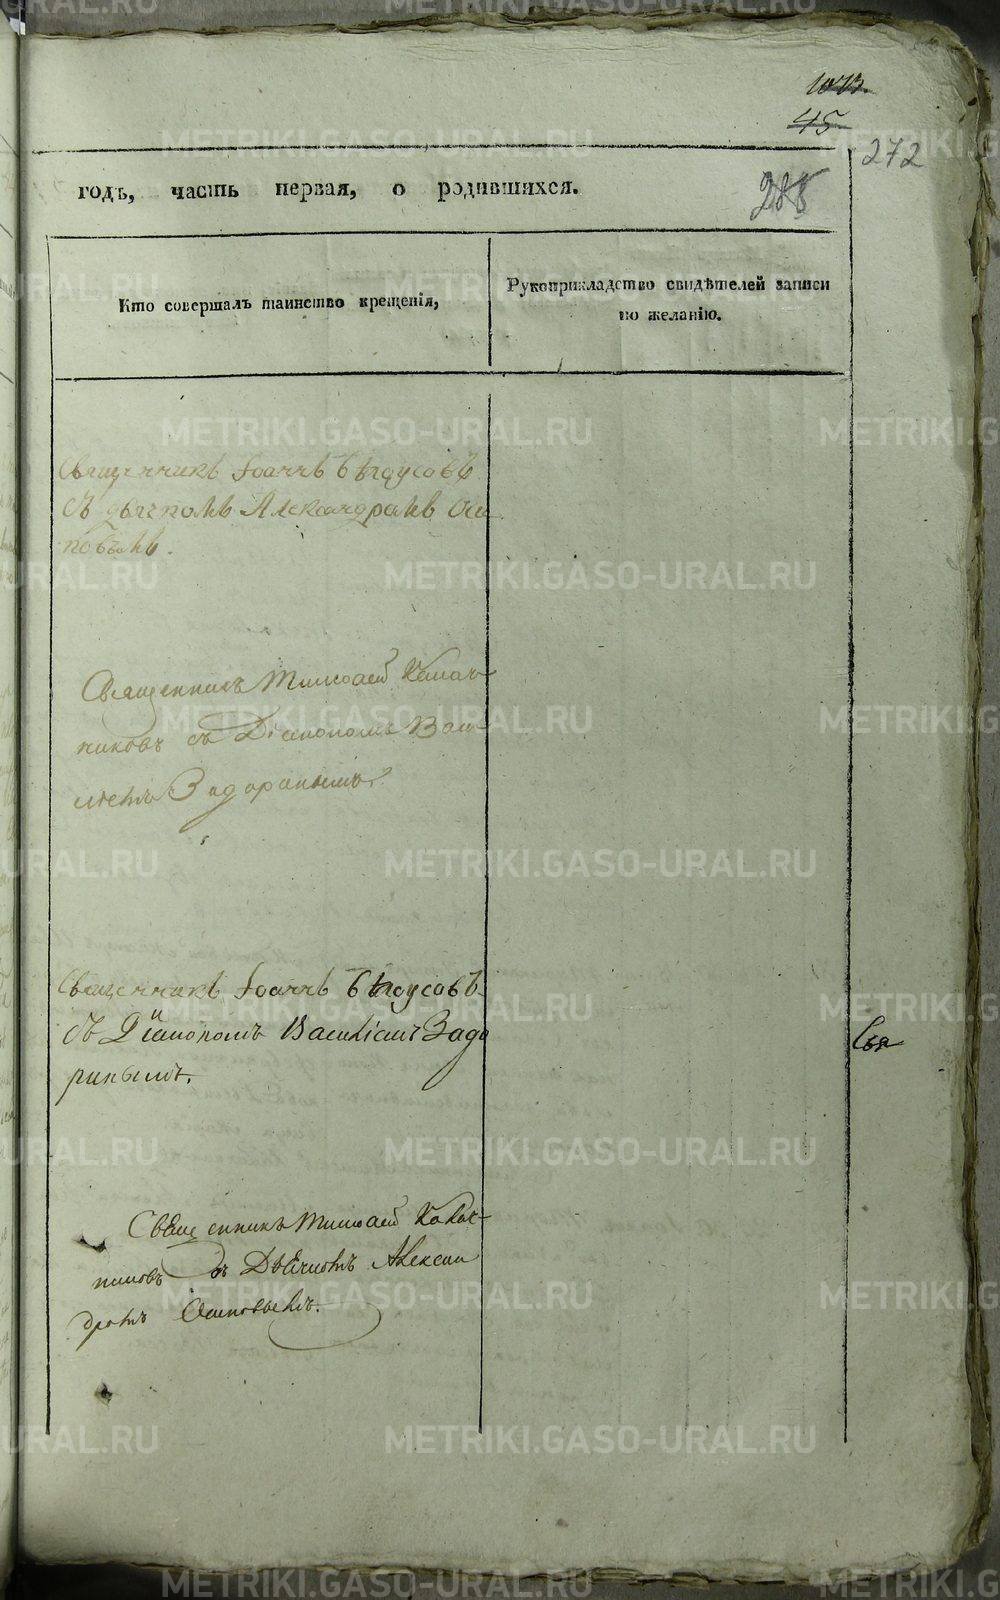 45
272
288
годъ, часть первая, о родившихся.
Кто совершалъ таинство крещенія,
Рукоприкладство свидѣтелей записи
по желанію.
Священникъ Іоаннъ Бѣлоусовъ
съ дьячкомъ Александромъ Оси
повымъ.
Священникъ Николай
съ Діакономъ Васи
лемъ Задоринымъ
Священникъ Іоаннъ Бѣлоусовъ
съ Діакономъ Василіемъ Задо
ринымъ.
Священникъ Николай
съ Дьячкомъ Алексан
дромъ Осиповымъ.
METRIKI.GASO-URAL.RU